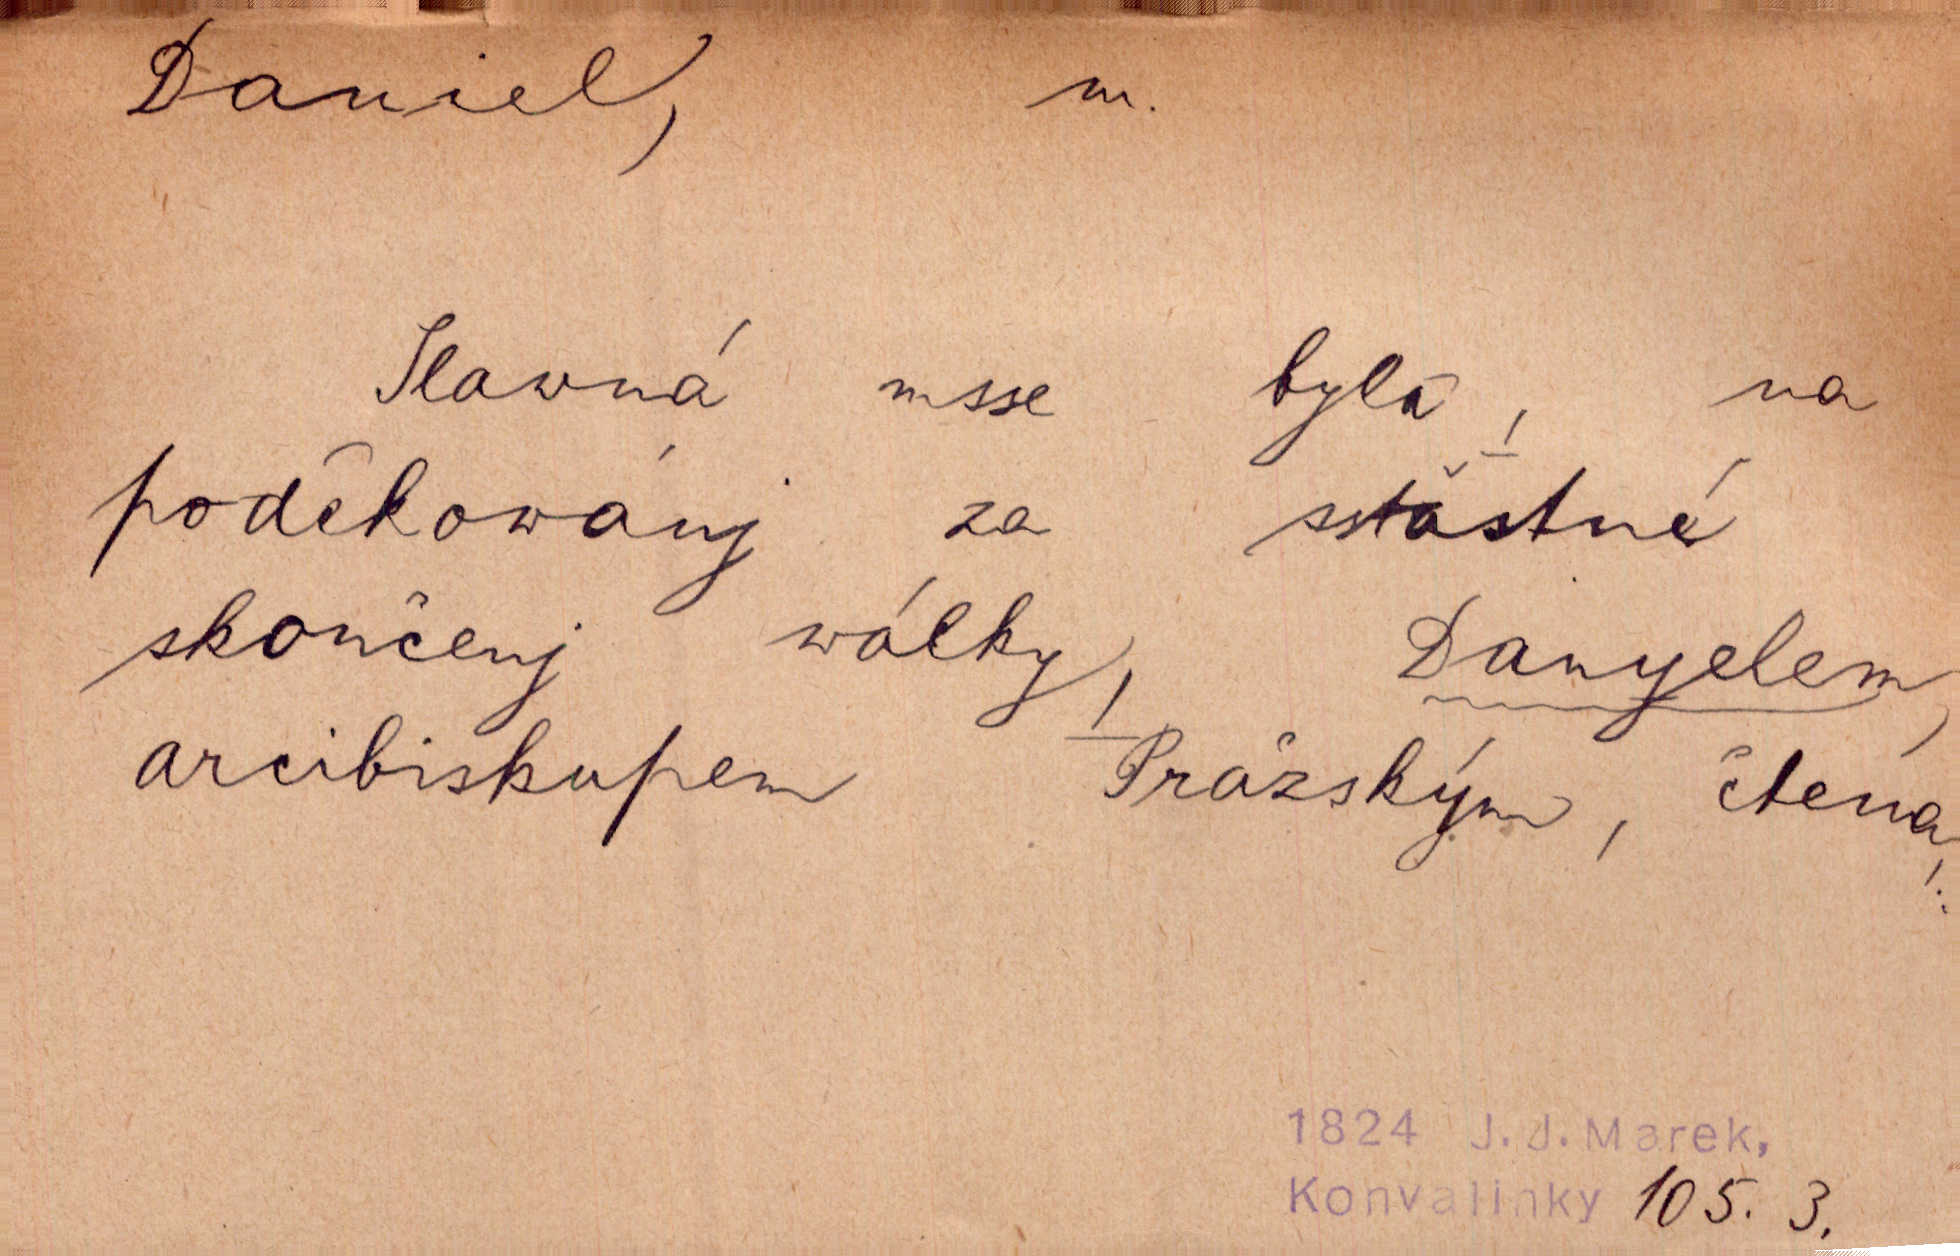 Daniel, m.
Slawná msse byla, na
poděkowánj za sstästné
skončenj wálky, Danyelem,
arcibiskupem Prážským, čtena.
1824 J. J. Marek,
Konvalinky 105. 3.